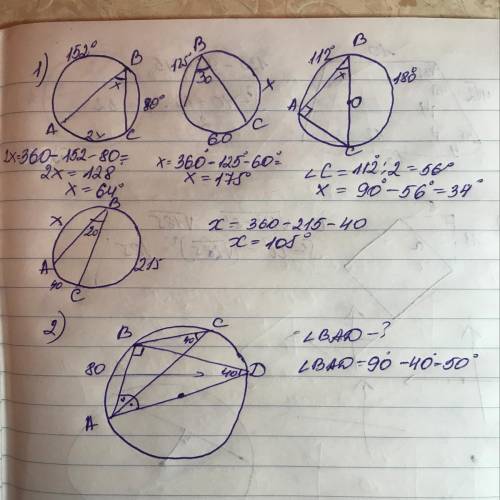 1)
152° B
x
80°
A 2x C
2x=360-152-80=
2x = 128
x = 64°
B
125°
30
x
C
60
x=360°-125°-60°=
x = 175°
112° B
x
180°
A O
C
∠C = 112°:2 = 56°
x = 90° - 56° = 34°
B
x
20
A
40 C
215
x = 360-215-40
x = 105°
2)
B C
40°
80
40 D
A
∠BAD - ?
∠BAD = 90° - 40° = 50°